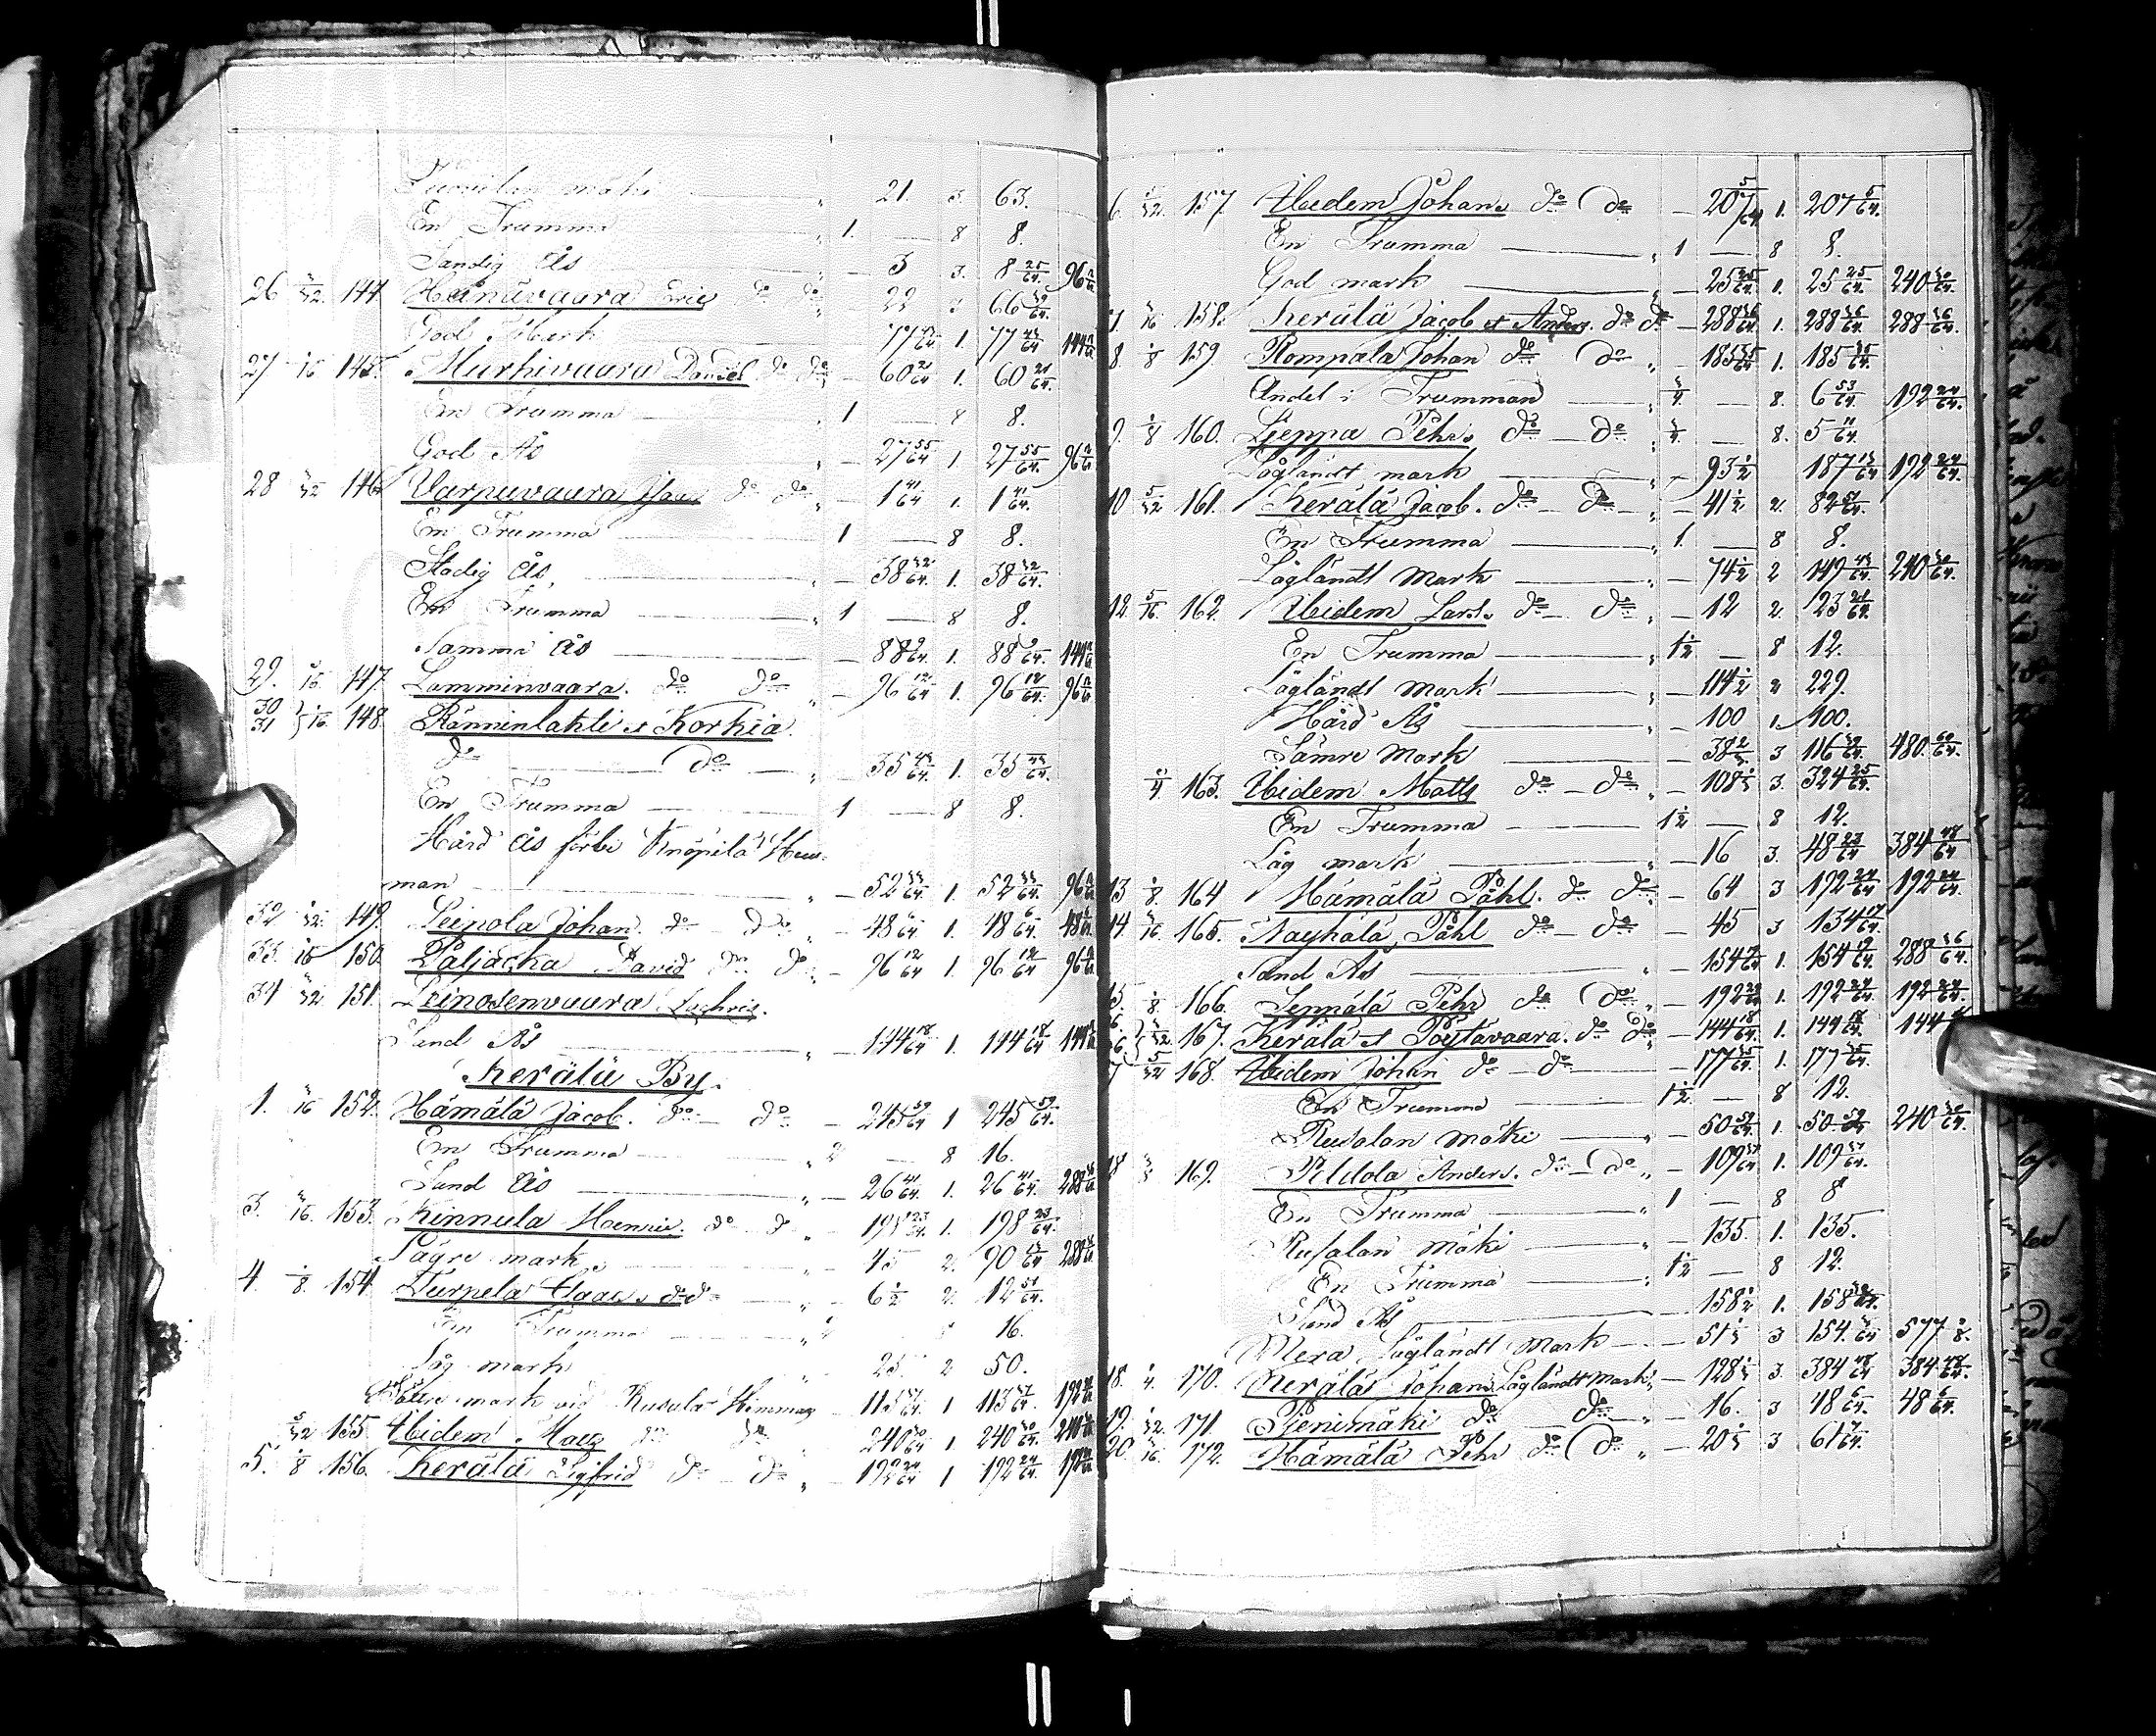 mäki — " 21. 3. 63.
En Trumma " 1. — 8 8.
Sandig Ås " — 3 3. 8 25/64. 96 12/64
26 3/32. 144. Hanuvaara Eric do do " 22 3 66 39/64.
God Mark 77 43/64 1. 77 43/64 144 18/64
27 1/16 145. Murhivaara Daniel do do — 60 21/64 1. 60 21/64
En Trumma 1 — 8 8.
God Ås " — 27 55/64 1. 27 55/64. 96 12/64
28 3/32 146 Varpuvaara Isaac do do " — 1 41/64 1. 1 41/64.
En Trumma — 1 — 8 8.
Stadig Ås, — " — 38 32/64. 1. 38 32/64.
En Trumma — " 1 — 8 8.
Samma Ås — — 88 9/64. 1. 88 9/64. 144 18/64
29. 1/16 147. Lamminvaara. do do " — 96 12/64 1. 96 12/64. 96 12/64
30
31 } 1/16 148. Rönninlahti et Korkia.
do — do — " — 35 43/64. 1. 35 43/64.
En Trumma — 1 — 8 8.
Hård Ås förbi Knöpilä Hem-
man — " — 52 33/64. 1. 52 33/64. 96 12/64
32 1/32. 149. Leipola Johan. do — do " — 48 6/64 1. 48 6/64. 48 6/64
33. 1/16 150. Päljäckä David do do " — 96 12/64 1. 96 12/64 96 12/64
34 3/32 151. Leinosenvaara Zachris.
Sand Ås — " — 144 18/64 1. 144 18/64 144 18/64
Kerälä By.
1. 3/16 152. Hämälä Jacob. do — do — 245 59/64 1 245 59/64.
En Trumma — " 2 — 8 16.
Sand Ås — " — 26 41/64. 1. 26 41/64. 288 36/64
3. 3/16. 153. Kinnula Henric. do — do " — 198 23/64. 1. 198 23/64.
Lägre mark — " — 45 2. 90 13/64 288 36/64
4. 1/8. 154. Turpela Isaac. do do — " — 6 1/2 2. 12 51/64.
En Trumma — " 2 8 16.
Låg mark " 25 2 50.
mark vid Rusula Hemman — 113 37/64. 1 113 37/64. 192 24/64
5/32 155. Ibidem Mats do do — 240 30/64 1. 240 30/64. 240 30/64
5. 1/8 156. Kerälä Sigfrid do — do " — 192 24/64 1 192 24/64. 192 24/64
6. 5/32. 157. Ibidem Johan. do do — 207 5/64 1. 207 5/64.
En Trumma — " 1 — 8 8.
God mark — " — 25 25/64. 1. 25 25/64. 240 30/64.
7. 3/16 158. Kerälä Jacob et Anders. do do — 288 36/64. 1. 288 36/64. 288 36/64.
8. 1/8 159. Rompala Johan do do " — 185 35/64 1. 185 35/64.
Andel i Trumman — " 3/4. — 8. 6 53/64. 192 24/64.
9. 1/8 160. Ljeppa Pehr. do — do " 3/4. — 8. 5 11/64.
Lågländt mark — " — 93 1/2 187 13/64 192 24/64.
10 5/32 161. Kerälä Jacob. do — do — " — 41 1/2 2. 82 51/64.
En Trumma — " 1. — 8 8.
Lågländt Mark — " — 74 1/2 2 149 43/64. 240 30/64.
12. 5/16. 162. Ibidem Lars. do — do " — 12 2. 23 21/64.
En Trumma — " 1 1/2 — 8 12.
Lågländt Mark — " — 114 1/2 2 229.
Hård Ås — " — 100 1. 100.
Sämre Mark — — 38 2/3 3 116 39/64. 480. 60/64.
1/4. 163. Ibidem Matts do — do " — 108 1/3 3. 324 25/64.
En Trumma — 1 1/2 — 8 12.
Låg mark — " — 16 3. 48 23/64 384 48/64
13 1/8. 164 Hämälä Påhl. do do — 64 3 192 24/64 192 24/64.
14. 3/16. 165. Nayhälä Påhl do — do — 45 3 134 17/64.
Sand Ås — " — 154 19/64 1. 154 19/64 288 36/64.
15. 1/8. 166. Seppälä Pehr do do " — 192 24/64 1. 192 24/64 192 24/64.
167. Kerälä et Pöytävaara. do do — 144 18/64. 1. 144 18/64. 144
5/32 168. Ibidem Johan do — do — 177 35/64. 1. 177 35/64.
En Trumma — 1 1/2. — 8 12.
Rusalan mäki — " — 50 59/64. 1. 50 59/64 240 30/64.
18 3/8 169. Pildola Anders. do — do " — 109 37/64 1. 109 37/64.
En Trumma — " 1 — 8 8
Rusalan mäki — " — 135. 1. 135.
En Trumma — " 1 1/2 — 8 12.
Sand Ås — — 158 1/2 1. 158
Mera Lågländt Mark — — 51 1/3 3 154. 577.
18. 1/4. 170. Kerälä Johan Lågländt Mark " — 128 1/3 3. 384 48/64 384 48/64.
19. 1/32. 171. Pjenimäki do — do " — 16. 3 48 6/64. 48 6/64.
20. 3/16. 172. Hämälä Pehr do do " — 20 1/3 3 61 7/64.